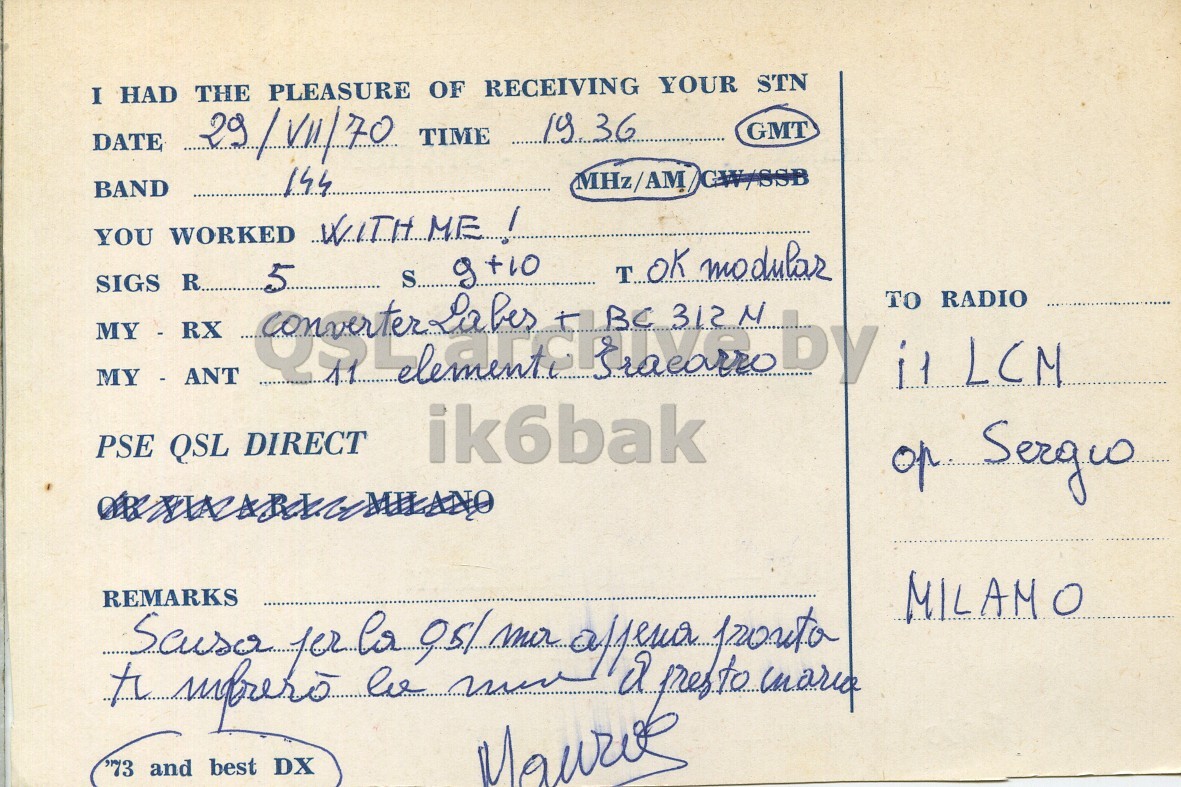 I HAD THE PLEASURE OF RECEIVING YOUR STN
DATE 29/VII/70 TIME 19.36 GMT
BAND 144 MHz/AM/CW/SSB
YOU WORKED WITH ME!
SIGS R 5 S 9+10 T OK modular
MY - RX converter Labes + BC 312 N
MY - ANT 11 elementi Fracarro
PSE QSL DIRECT
OR VIA A.R.I. - MILANO
REMARKS
Scusa per la QSL ma appena pronta
ti la mia A presto in aria
'73 and best DX
TO RADIO
i1 LCM
op. Sergio
MILANO
QSL archive by
ik6bak